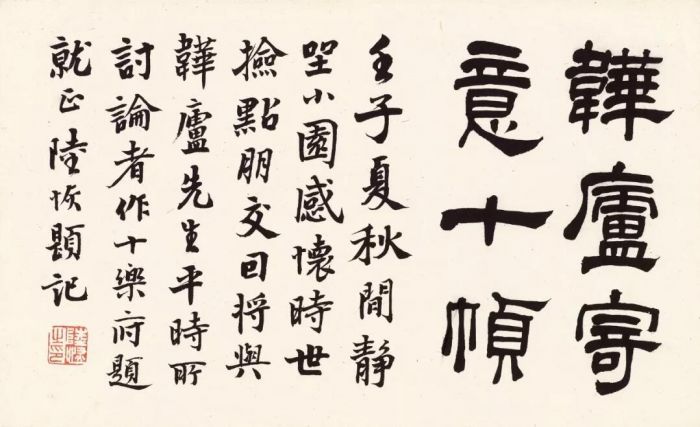 韡廬寄
意十幀
壬子夏秋間靜
坐小園感懷時世
撿點朋交回將與
韡廬先生平時所
討論者作十樂府題
就正陸恢題記